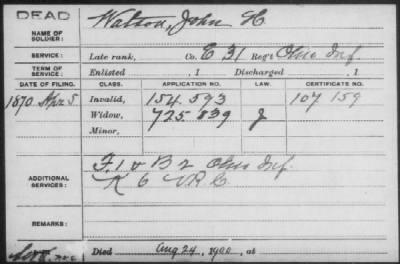 DEAD
NAME OF SOLDIER: Watson, John H
SERVICE: Late rank, Co. E 31 Reg't Ohio Inf
TERM OF SERVICE: Enlisted , 1 Discharged , 1
DATE OF FILING. CLASS. APPLICATION NO. LAW. CERTIFICATE NO.
1870 Apr 5 Invalid, 154.593 107 159
Widow, 725.839 J
Minor,
ADDITIONAL SERVICES: F. 1 & B 2 Ohio Inf.
K 6 V.R.C.
REMARKS:
Died Aug 24, 1900, at